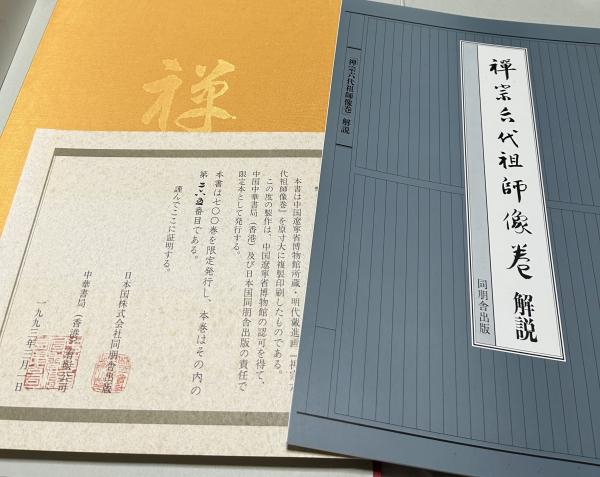 禅
本書は中国遼寧省博物館所蔵・明代戴進画
代祖師像巻』を原寸大に複製印刷したものである。
この度の製作は、中国遼寧省博物館の認可を得て、
中国中華書局(香港)及び日本国同朋舎出版の責任で
限定本として発行する。
本書は七〇〇巻を限定発行し、本巻はその内の
第 番目である。
謹んでここに証明する。
日本国株式会社同朋舎出版
中華書局(香港)有限公司
一九九 年三月 日
「禅宗六代祖師像巻」解説
禅宗六代祖師像巻 解説
同朋舎出版